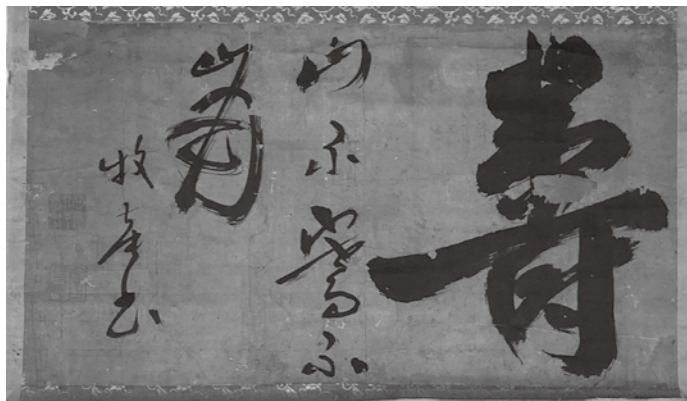 壽
山不騫不
崩
牧書